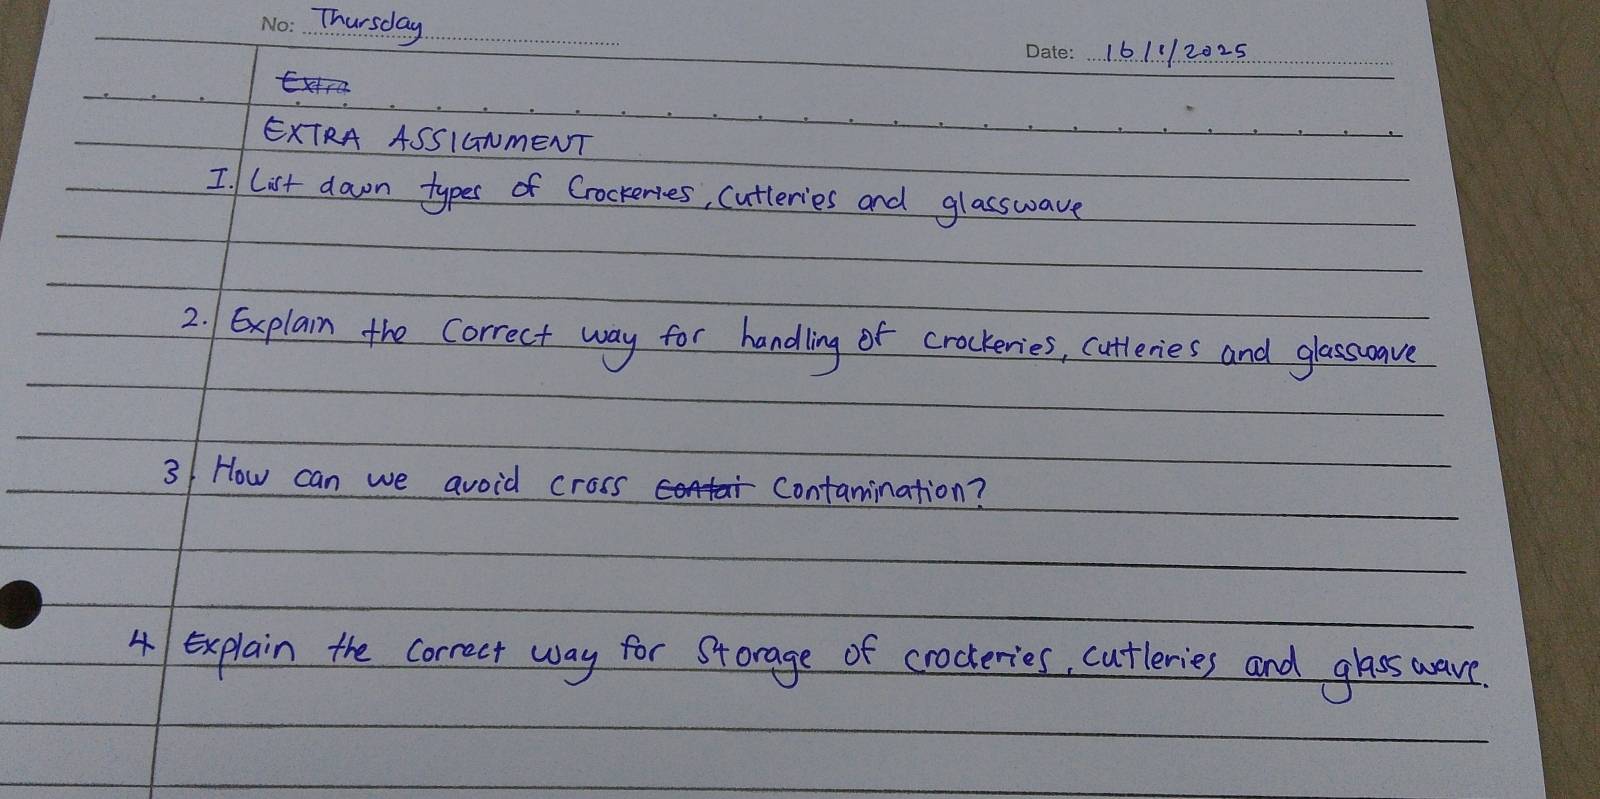 No: Thursday
Date: 16/1/2025
Extra
EXTRA ASSIGNMENT
I. List down types of Crockeries, Cutleries and glasswave
2. Explain the Correct way for handling of crockeries, cutleries and glasswave
3. How can we avoid cross contai contamination?
4 Explain the correct way for Storage of crockeries, cutleries and glasswave.